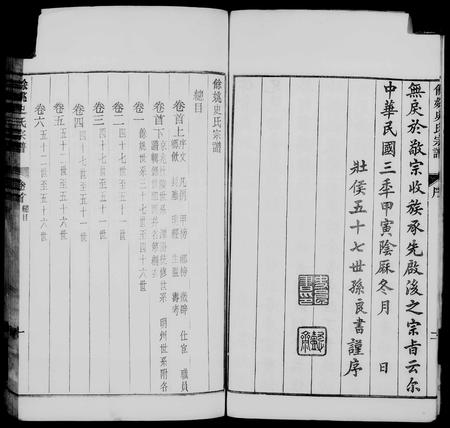 餘姚史氏宗譜
序
二
無戾於敬宗收族承先啟後之宗旨云尔
中華民國三年甲寅陰厤冬月 日
壯侯五十七世孫良書謹序
餘姚史氏宗譜
總目
卷首上 序文 凡例 甲榜 鄉榜 徵辟 仕宦 職員
封廕 生監 壽考
卷首下
卷一 餘姚世系三十七世至四十六世
卷二 四十七世至五十一世
卷三 四十七世至五十一世
卷四 四十七世至五十一世
卷五 五十二世至五十六世
卷六 五十二世至五十六世
餘姚史氏宗譜
卷首 總目
一